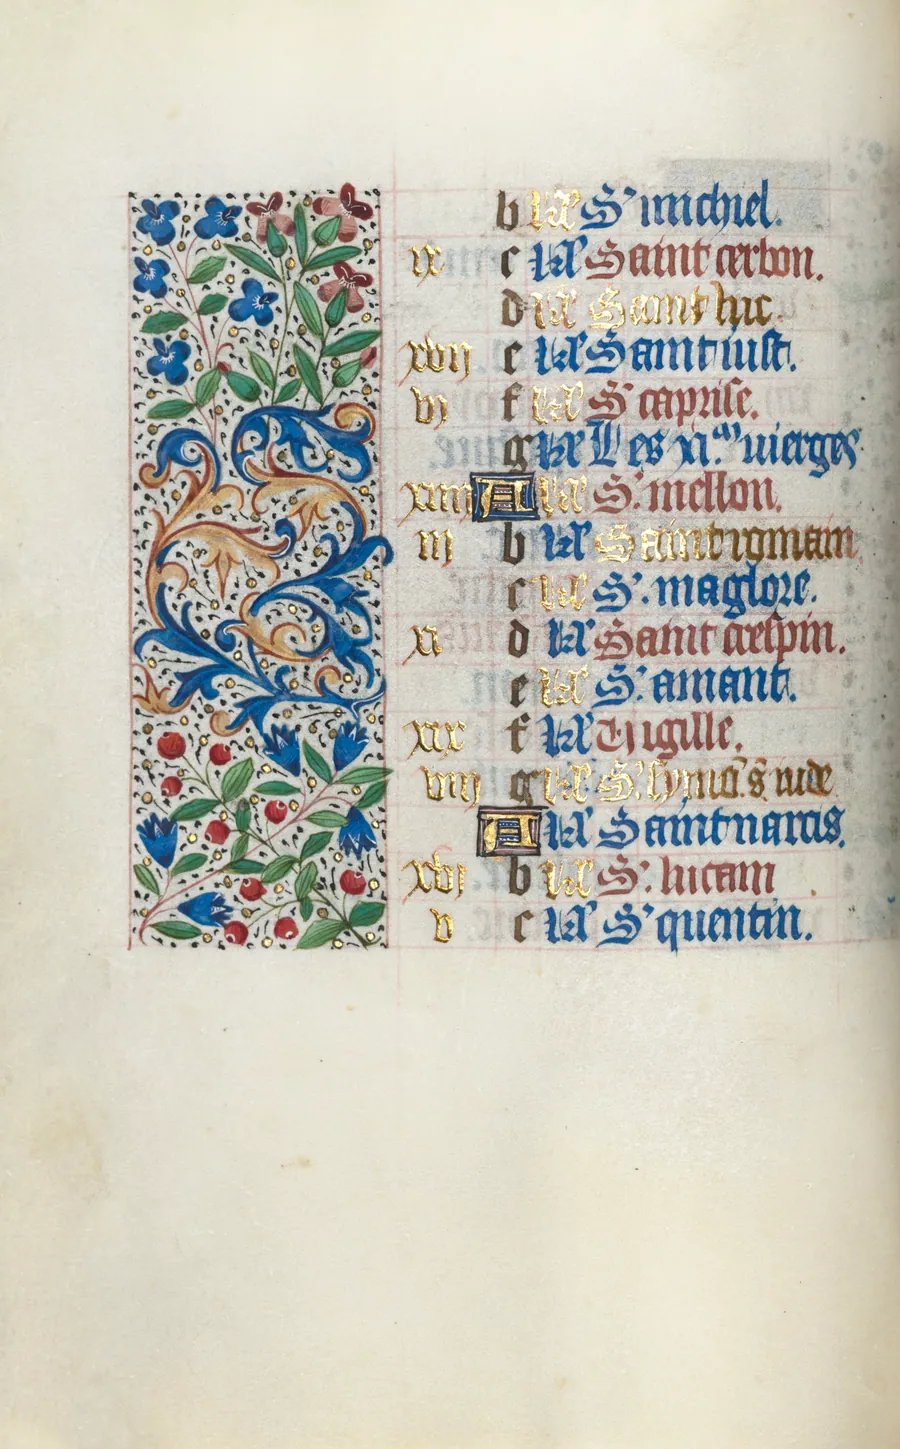 b kł S' michiel.
ix c kł Saint cerbon.
d kł Saint luc.
xvij e kł Saint iust.
vj f kł S' caprise.
g kł Les xi.m vierges
xiiij A kł S'. mellon.
iij b kł Saint romain
c kł S'. maglore.
xi d kł Saint crespin.
e kł S'. amant.
xix f kł Vigille.
viij g kł S'. symō. s. iude
A kł Saint narcis.
xvj b kł S'. lucain
v c kł S' quentin.